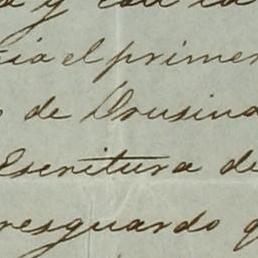 y con la
cia el primer
de Drusina
Escritura de
resguardo q